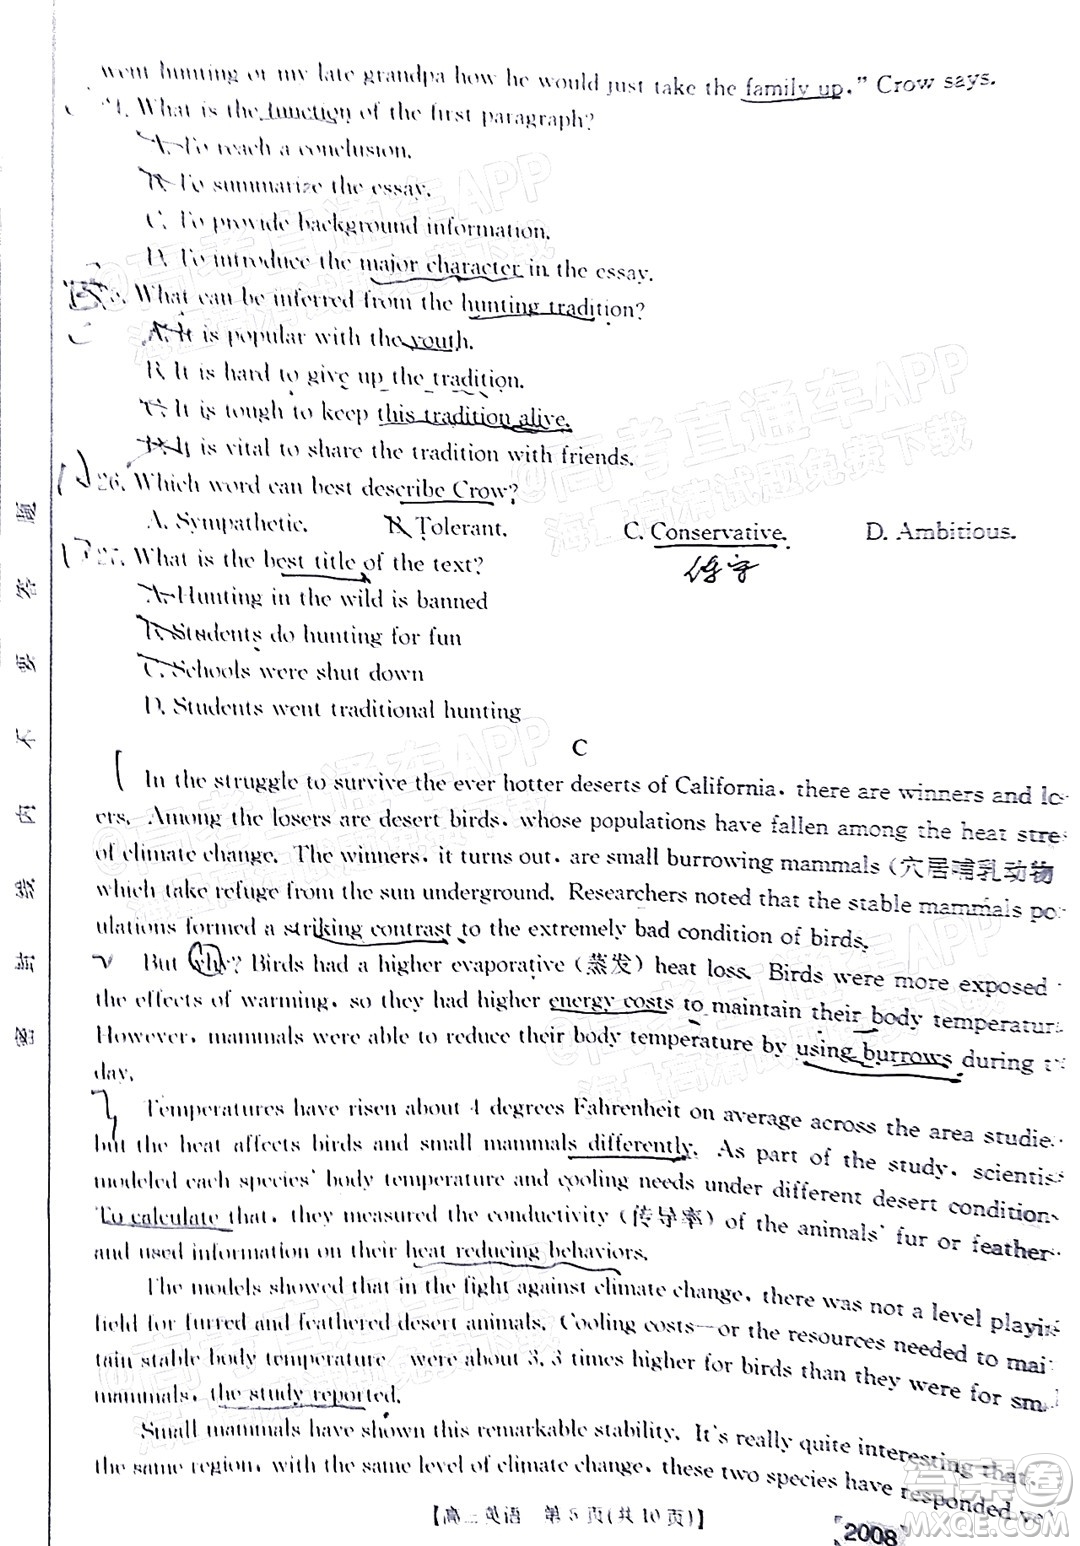 went hunting or my late grandpa how he would just take the family up." Crow says.
24. What is the function of the first paragraph?
A. To reach a conclusion.
B. To summarize the essay.
C. To provide background information.
D. To introduce the major character in the essay.
25. What can be inferred from the hunting tradition?
A. It is popular with the youth.
B. It is hard to give up the tradition.
C. It is tough to keep this tradition alive.
D. It is vital to share the tradition with friends.
26. Which word can best describe Crow?
A. Sympathetic. B. Tolerant. C. Conservative. D. Ambitious.
保守
27. What is the best title of the text?
A. Hunting in the wild is banned
B. Students do hunting for fun
C. Schools were shut down
D. Students went traditional hunting
C
In the struggle to survive the ever hotter deserts of California, there are winners and lo-
ers. Among the losers are desert birds, whose populations have fallen among the heat stre
of climate change. The winners, it turns out, are small burrowing mammals (穴居哺乳动物
which take refuge from the sun underground. Researchers noted that the stable mammals po
ulations formed a striking contrast to the extremely bad condition of birds.
But why? Birds had a higher evaporative (蒸发) heat loss. Birds were more exposed
the effects of warming, so they had higher energy costs to maintain their body temperatur
However, mammals were able to reduce their body temperature by using burrows during
day.
Temperatures have risen about 4 degrees Fahrenheit on average across the area studie
but the heat affects birds and small mammals differently. As part of the study, scientis
modeled each species' body temperature and cooling needs under different desert condition
To calculate that, they measured the conductivity (传导率) of the animals' fur or feather
and used information on their heat reducing behaviors.
The models showed that in the fight against climate change, there was not a level playin
field for furred and feathered desert animals. Cooling costs—or the resources needed to mai
tain stable body temperature—were about 3.3 times higher for birds than they were for sm
mammals, the study reported.
Small mammals have shown this remarkable stability. It's really quite interesting that
the same region, with the same level of climate change, these two species have responded ve
【高三英语 第5页(共10页)】
2008
密 封 线 内 不 要 答 题
@高考直通车APP
海量高清试题免费下载
答案圈
MXQE.COM